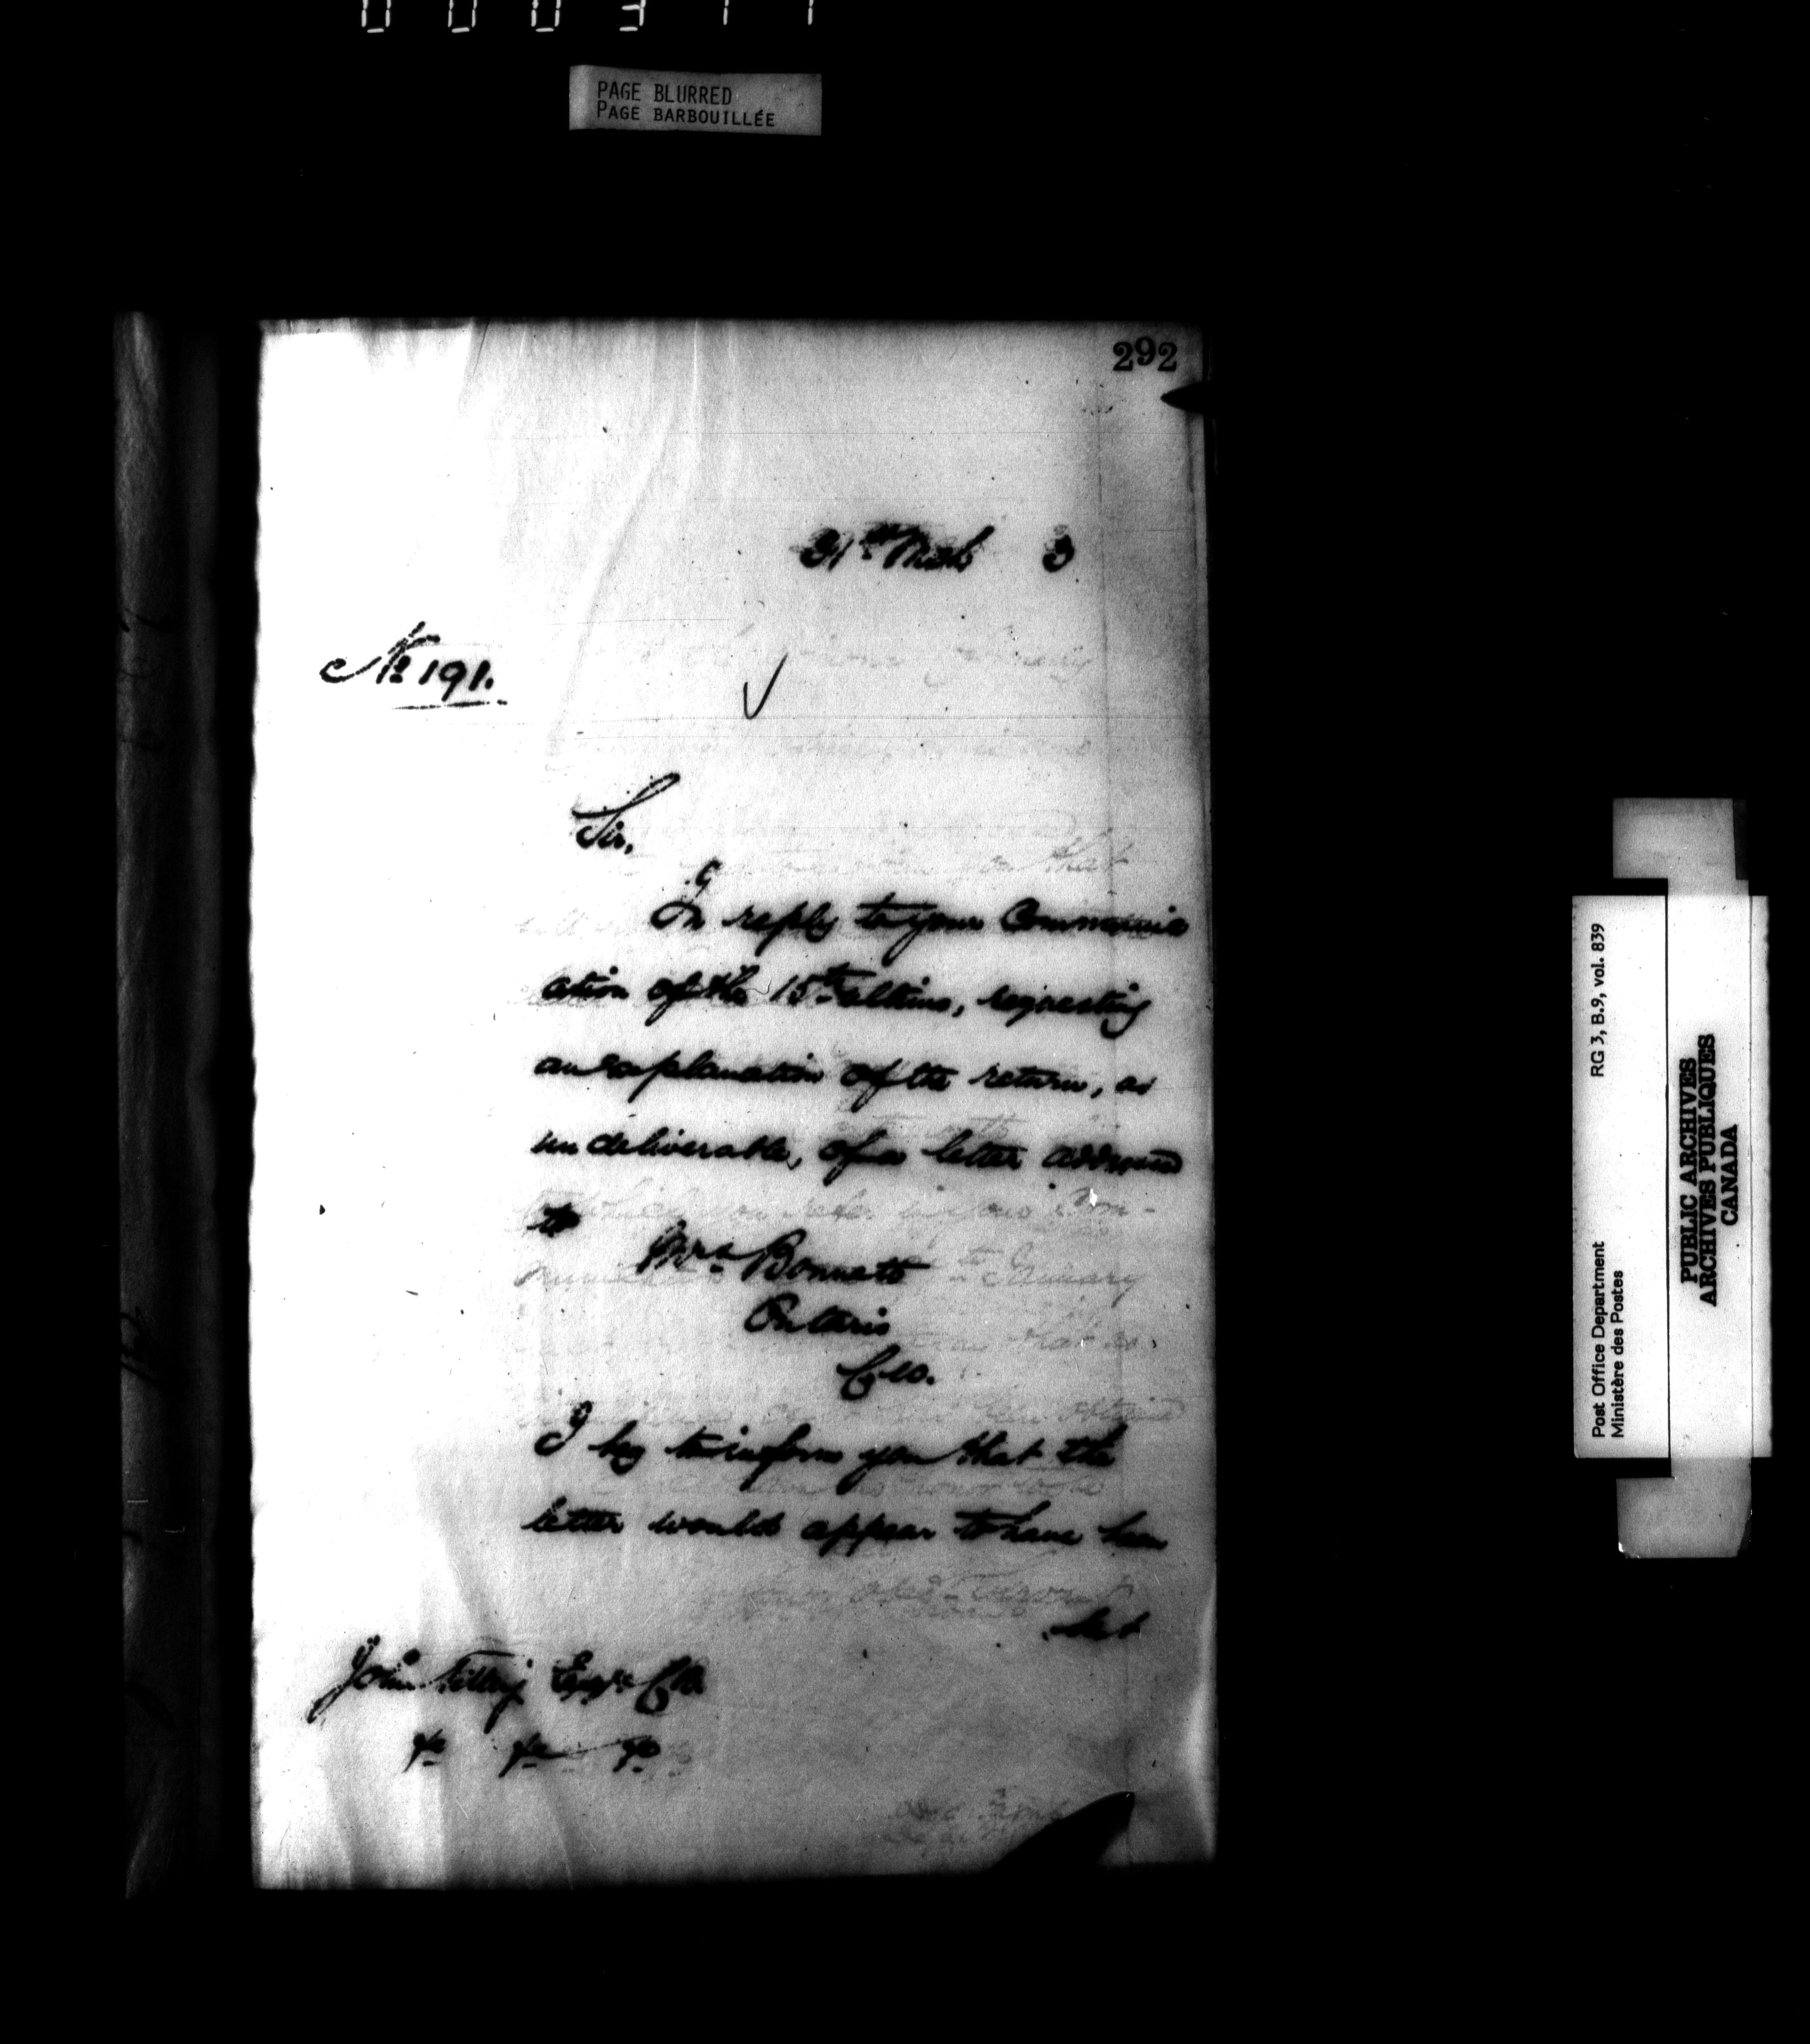 PAGE BLURRED
PAGE BARBOUILLÉE
292
31st Mch 3
No 191.
Sir,
In reply to your Communic
ation of the 15th ultimo, requesting
an explanation of the return, as
undeliverable, of a letter addressed
to
Mrs Bonnett
Ontario
C.W.
I beg to inform you that the
letter would appear to have been
John Tilley Esqre C.B.
&c &c &c
Post Office Department
Ministère des Postes
RG 3, B.9, vol. 839
PUBLIC ARCHIVES
ARCHIVES PUBLIQUES
CANADA